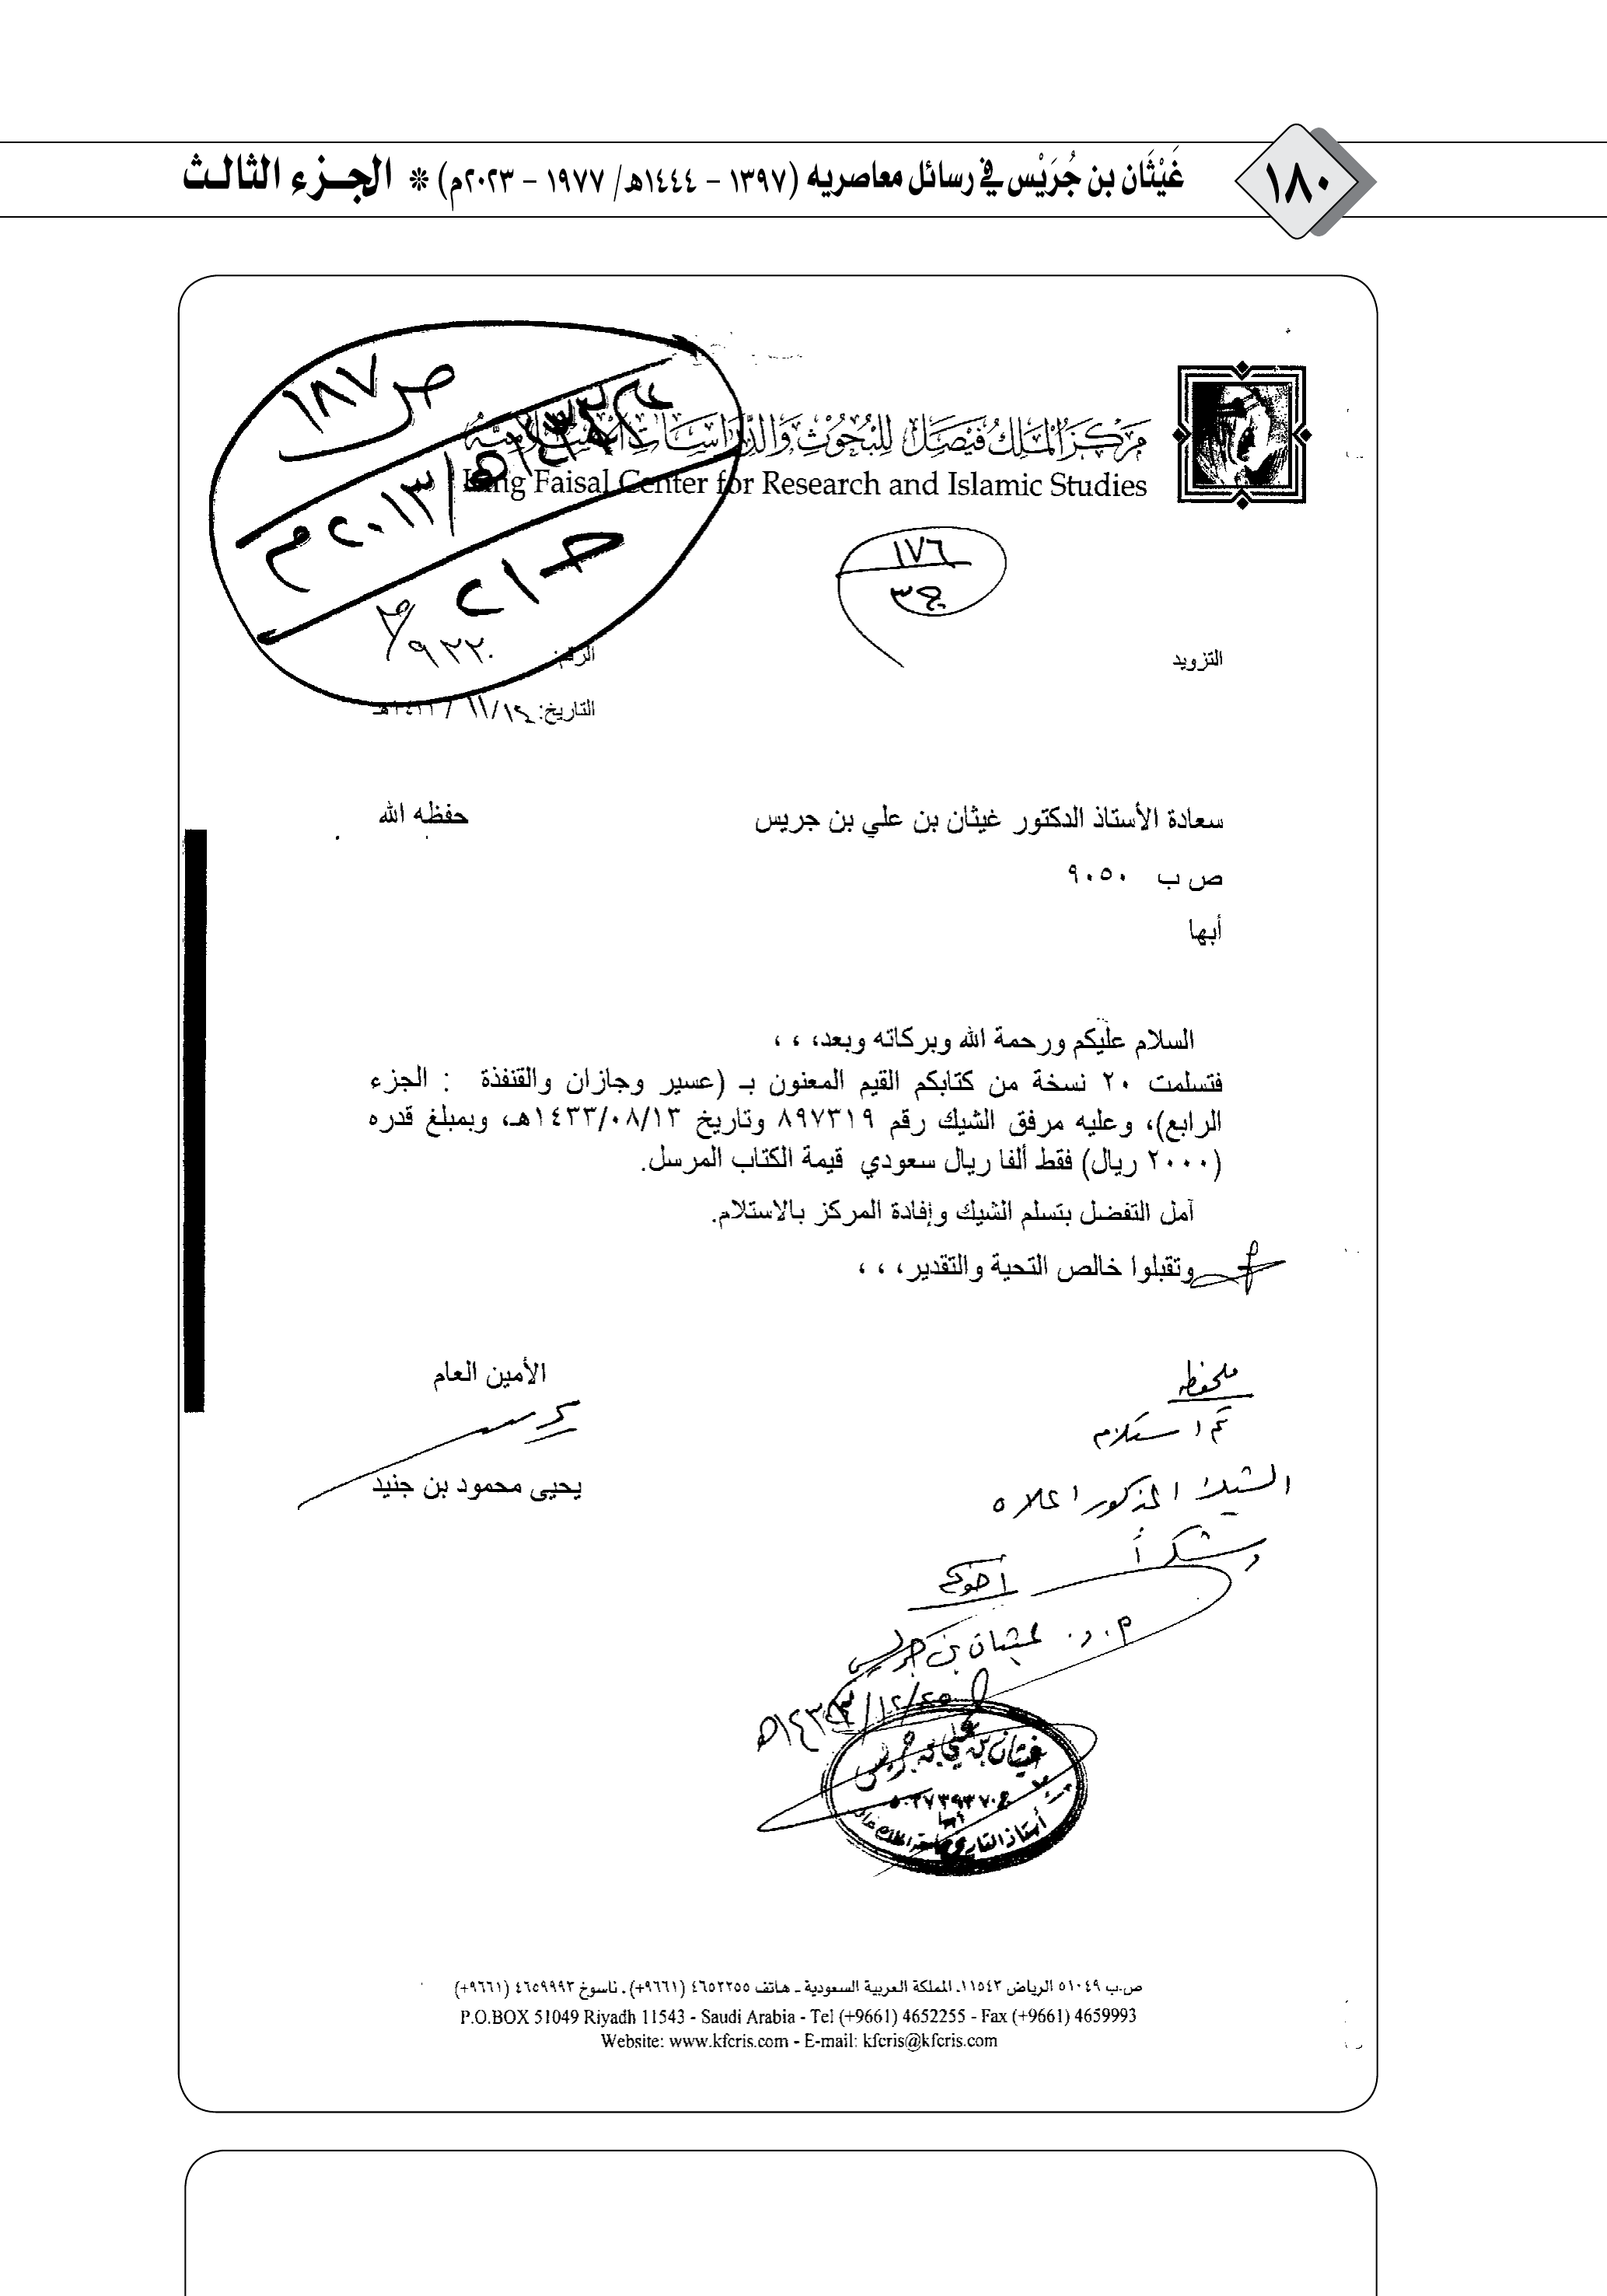 ١٨٠
غَيْثَان بن جُرَيْس في رسائل معاصريه (١٣٩٧ – ١٤٤٤هـ/ ١٩٧٧ – ٢٠٢٣م) * الجزء الثالث
ص ١٨٧
١٤٣٣هـ/٢٠١٣م
مركز الملك فيصل للبحوث والدراسات الإسلامية
King Faisal Center for Research and Islamic Studies
١٧٦
ج٣
التزويد
الرقم:
التاريخ: ١١/١٤/
سعادة الأستاذ الدكتور غيثان بن علي بن جريس حفظه الله
ص ب ٩٠٥٠
أبها
السلام عليكم ورحمة الله وبركاته وبعد، ، ،
فتسلمت ٢٠ نسخة من كتابكم القيم المعنون بـ (عسير وجازان والقنفذة : الجزء
الرابع)، وعليه مرفق الشيك رقم ٨٩٧٣١٩ وتاريخ ١٤٣٣/٠٨/١٣هـ، وبمبلغ قدره
(٢٠٠٠ ريال) فقط ألفا ريال سعودي قيمة الكتاب المرسل.
آمل التفضل بتسلم الشيك وإفادة المركز بالاستلام.
وتقبلوا خالص التحية والتقدير، ، ،
الأمين العام
يحيى محمود بن جنيد
ملحوظه
تم استلام
الشيك المذكور اعلاه
وشكراً
أخوكم
أ. د. غيثان بن جريس
غيثان بن علي بن جريس
أبها
ص.ب ٥١٠٤٩ الرياض ١١٥٤٣ـ المملكة العربية السعودية ـ هاتف ٤٦٥٢٢٥٥ (٩٦٦١+) ـ ناسوخ ٤٦٥٩٩٩٣ (٩٦٦١+)
P.O.BOX 51049 Riyadh 11543 - Saudi Arabia - Tel (+9661) 4652255 - Fax (+9661) 4659993
Website: www.kfcris.com - E-mail: kfcris@kfcris.com